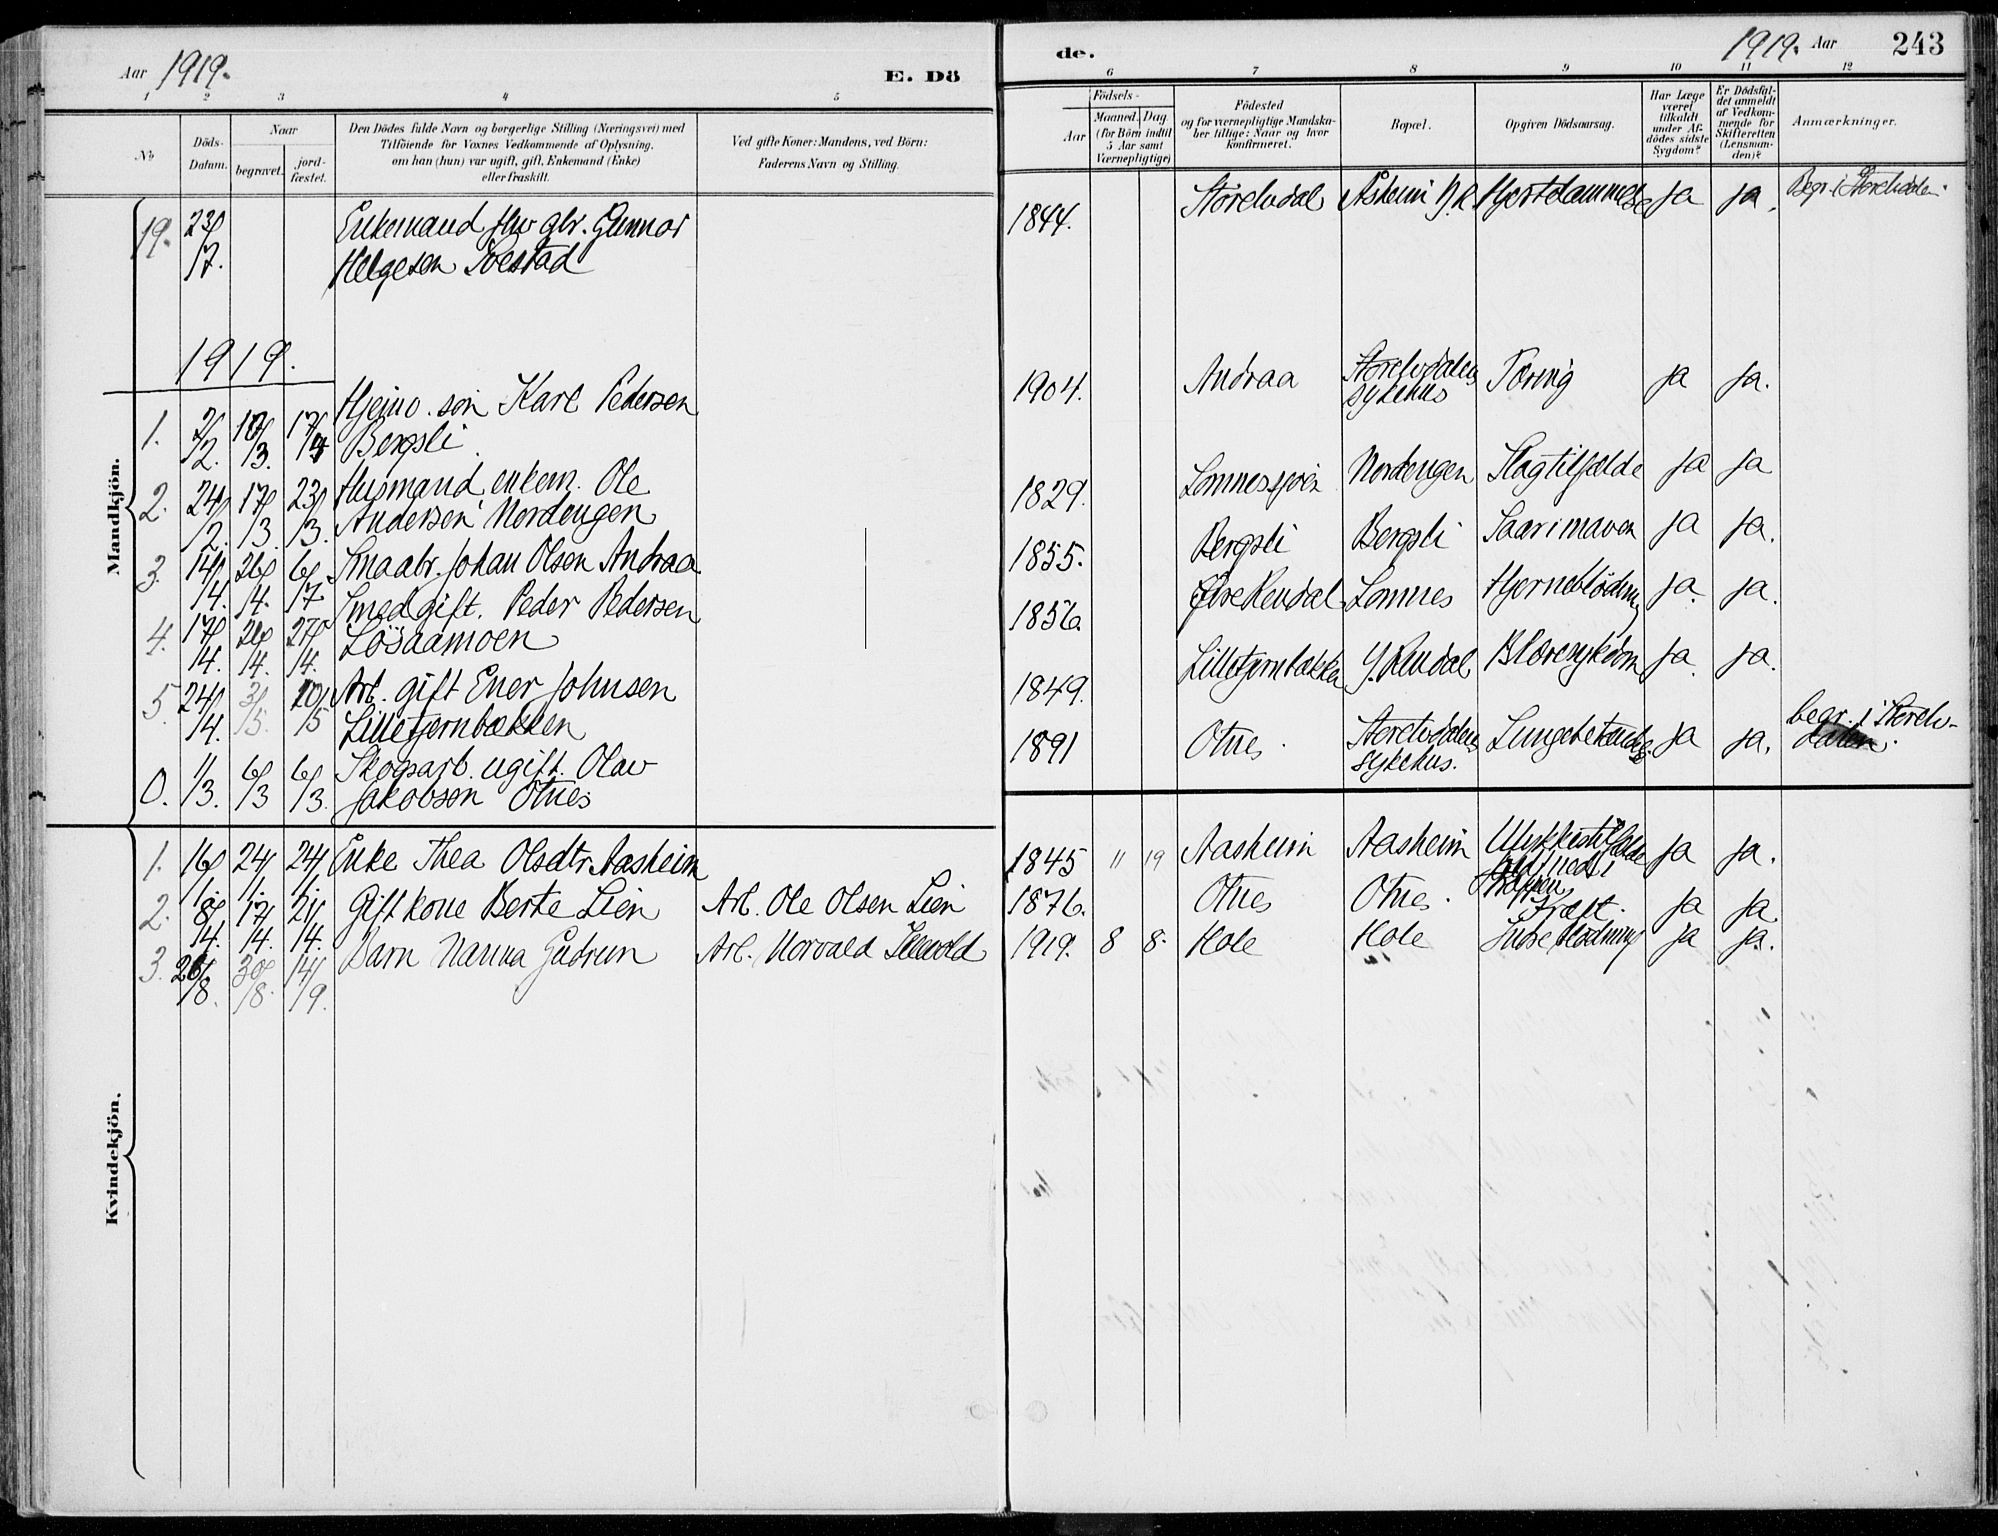 Aar 1919.
E. Dö
de.
1919. Aar
243
1 2 3 4 5 6 7 8 9 10 11 12
№
Döds-Datum.
Naar
begravet.
jord-fæstet.
Den Dödes fulde Navn og borgerlige Stilling (Næringsvei) med
Tilföiende for Voxnes Vedkommende af Oplysning,
om han (hun) var ugift, gift, Enkemand (Enke)
eller fraskilt.
Ved gifte Koner: Mandens, ved Börn:
Faderens Navn og Stilling.
Födsels-
Aar
Maaned. Dag
(for Börn indtil
5 Aar samt
Værnepligtige)
Födested
og for værnepligtige Mandska-
ber tillige: Naar og hvor
Konfirmeret.
Bopæl.
Opgiven Dödsaarsag.
Har Læge
været
tilkaldt
under Af-
dödes sidste
Sygdom?
Er Dödsfal-
det anmeldt
af Vedkom-
mende for
Skifteretten
(Lensman-
den)?
Anmærkninger.
Mandkjön.
19. 23/7. Enkemand fhv gbr. Gunnar
Helgesen
1844. Storelvdal Ja Ja. Begr. i Storelvdalen.
1919.
1. 2/2. 3. Karl Pedersen
Bergsli.
1904. Andraa Storelvdalens
sykehus Tæring Ja Ja.
2. 24/2. 17/3. 23/3. Husmand enkem. Ole
Andersen Nordengen
1829. Lomnessjøen Nordengen Slagtilfælde Ja Ja
3. 14/4. 26/4. Smaabr. Johan Olsen Andraa
1855. Bergsli Bergsli Saar i maven Ja Ja.
4. 17/4. 26/4. 27/4. Smed gift. Peder Pedersen
Løsaamoen
1856. Øvre Rendal Lomnes Hjerneblødning Ja. Ja.
5. 24/4. 3/5. Arb. gift Ener Johnsen
Lilletjernbækken
1849. Lilletjernbækken Y. Rendal Blæresykdom Ja. Ja.
0. 1/3. 6/3 6/3. Skogsarb. ugift. Olav
Jakobsen Otnes
1891 Otnes. Storelvdalens
sykehus. Lungebetændelse Ja Ja. begr. i Storelv-
dalen.
Kvindekjön.
1. 16/1. 24/1. 24/1. Enke Thea Olsdtr. Aasheim
1845 11 19 Aasheim Aasheim Ulykkestilfælde
faldt ned i
trappen Ja Ja.
2. 8/4. 17/4. 21/4. Gift kone Berte Lien Arb. Ole Olsen Lien
1876. Otnes Otnes. Kræft. Ja Ja
3. 26/8. 30/8. 14/9. Barn Nanna Gudrun Arb. Norvald
1919. 8 8. Hole Hole Indre blødning Ja Ja.